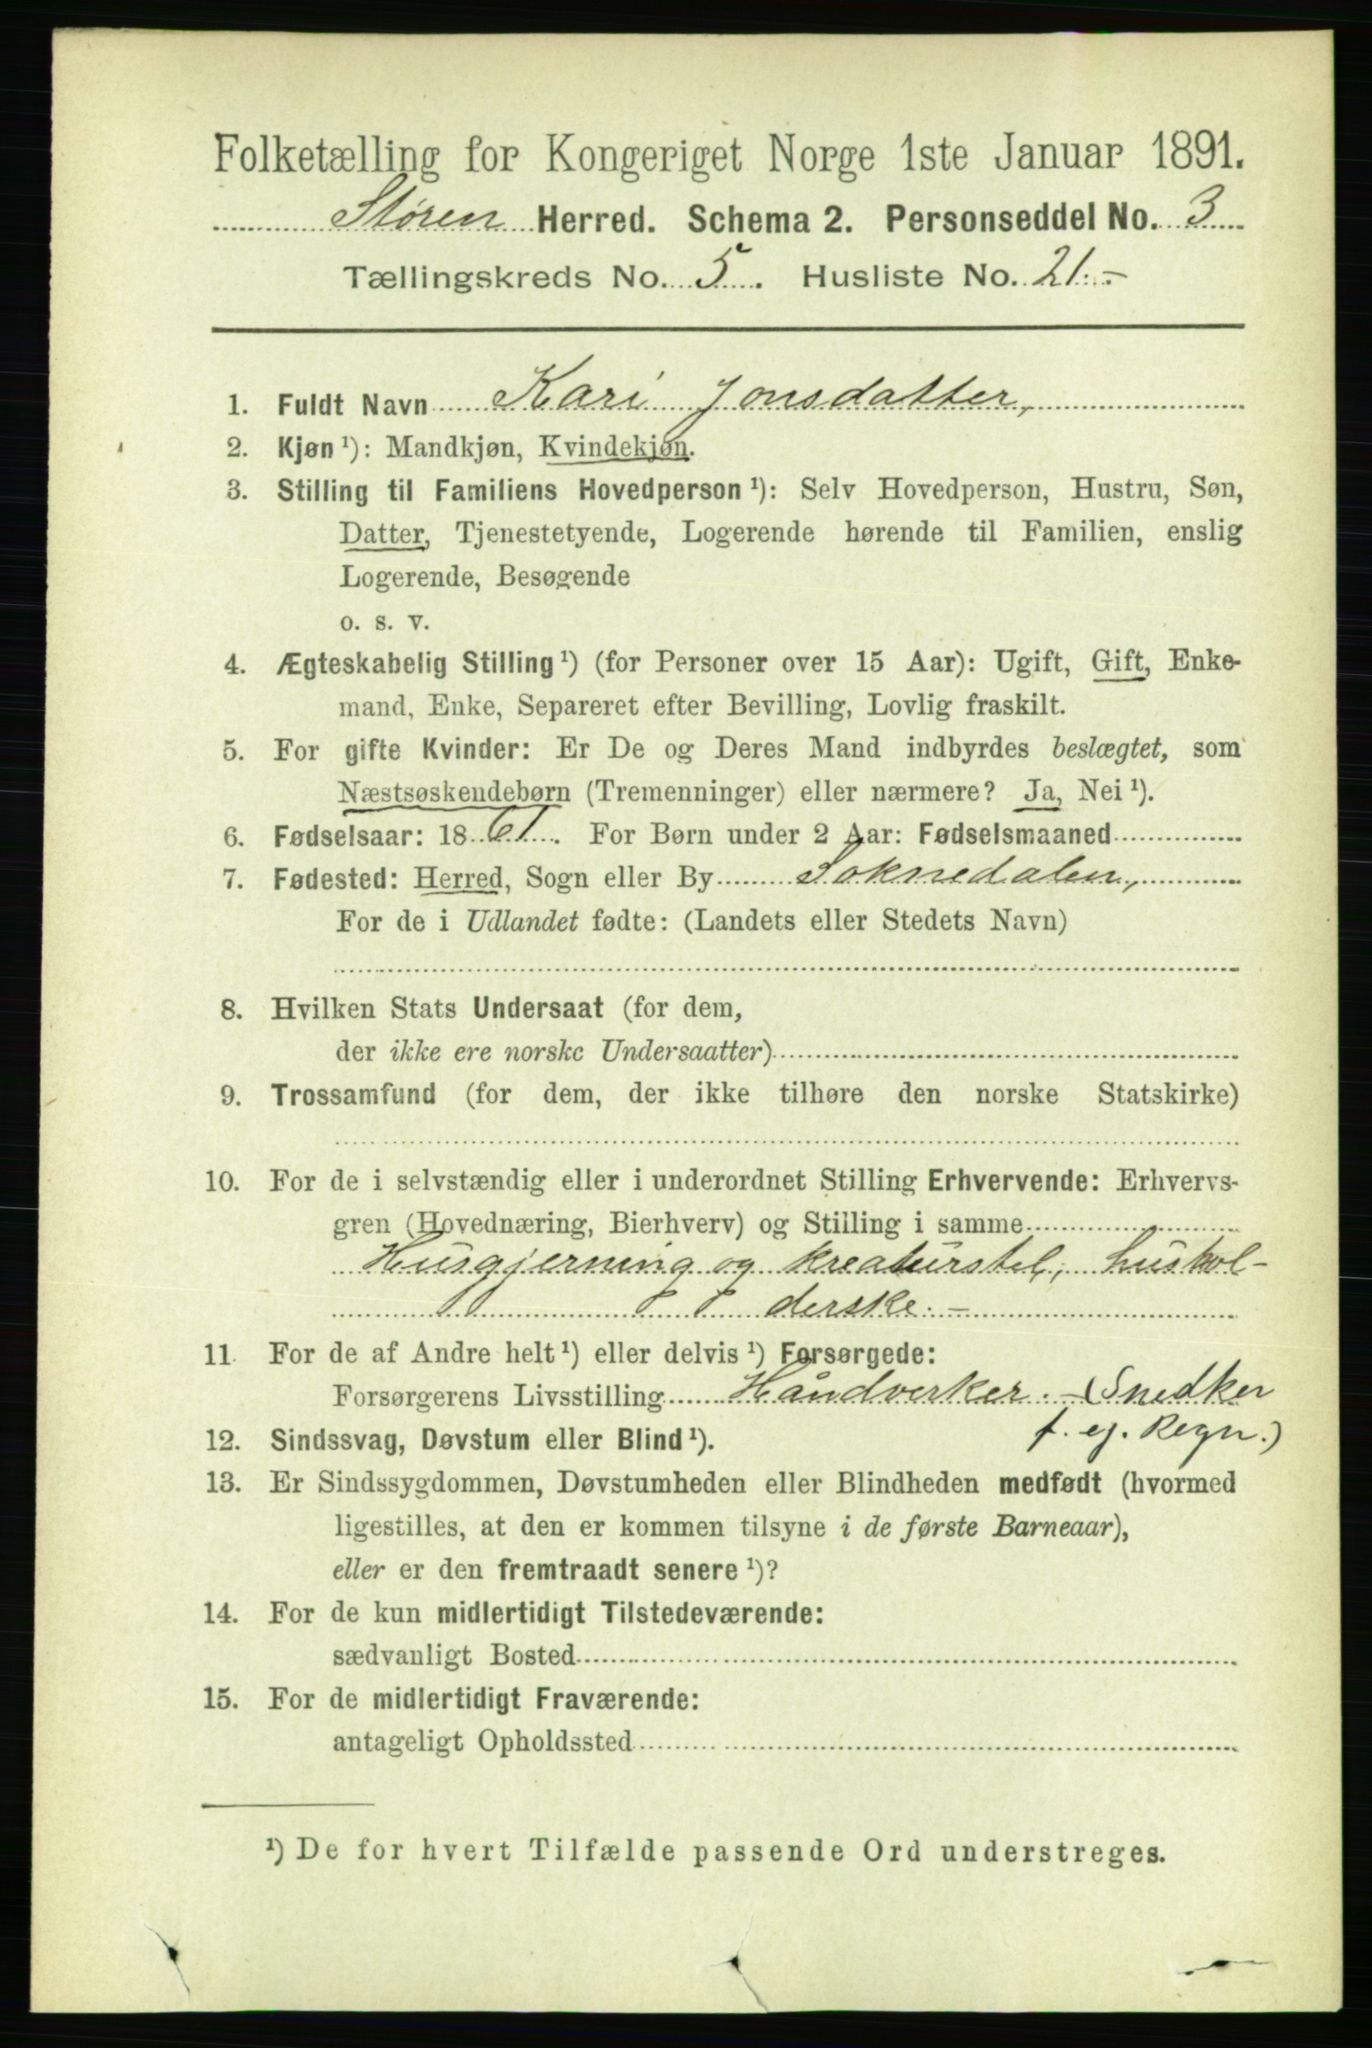 Folketælling for Kongeriget Norge 1ste Januar 1891.
Støren Herred. Schema 2. Personseddel No. 3
Tællingskreds No. 5. Husliste No. 21.-
1. Fuldt Navn Kari Jonsdatter,
2. Kjøn ¹): Mandkjøn, Kvindekjøn.
3. Stilling til Familiens Hovedperson ¹): Selv Hovedperson, Hustru, Søn,
Datter, Tjenestetyende, Logerende hørende til Familien, enslig
Logerende, Besøgende
o. s. v.
4. Ægteskabelig Stilling ¹) (for Personer over 15 Aar): Ugift, Gift, Enke-
mand, Enke, Separeret efter Bevilling, Lovlig fraskilt.
5. For gifte Kvinder: Er De og Deres Mand indbyrdes beslægtet, som
Næstsøskendebørn (Tremenninger) eller nærmere? Ja, Nei ¹).
6. Fødselsaar: 1861. For Børn under 2 Aar: Fødselsmaaned
7. Fødested: Herred, Sogn eller By Soknedalen,
For de i Udlandet fødte: (Landets eller Stedets Navn)
8. Hvilken Stats Undersaat (for dem,
der ikke ere norske Undersaatter)
9. Trossamfund (for dem, der ikke tilhøre den norske Statskirke)
10. For de i selvstændig eller i underordnet Stilling Erhvervende: Erhvervs-
gren (Hovednæring, Bierhverv) og Stilling i samme
Husgjerning og kreaturstel, hushol-
derske.-
11. For de af Andre helt ¹) eller delvis ¹) Forsørgede:
Forsørgerens Livsstilling Håndverker. - (Snedker
f. ej. Regn.)
12. Sindssvag, Døvstum eller Blind ¹).
13. Er Sindssygdommen, Døvstumheden eller Blindheden medfødt (hvormed
ligestilles, at den er kommen tilsyne i de første Barneaar),
eller er den fremtraadt senere ¹)?
14. For de kun midlertidigt Tilstedeværende:
sædvanligt Bosted
15. For de midlertidigt Fraværende:
antageligt Opholdssted
¹) De for hvert Tilfælde passende Ord understreges.